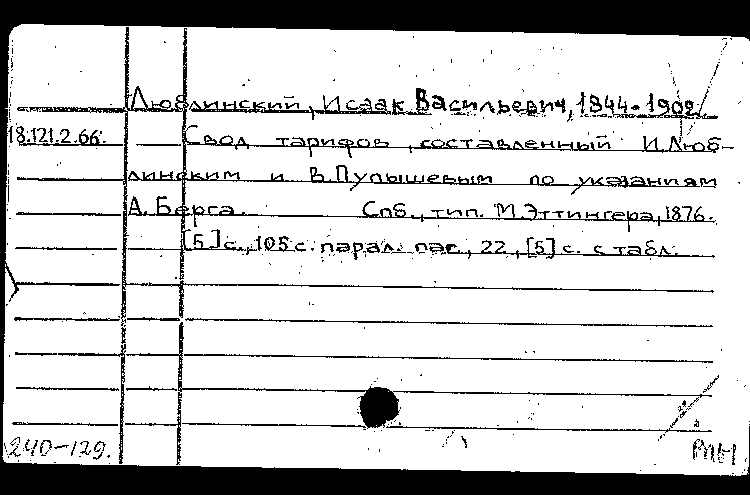 Люблинский, Исаак Васильевич, 1844-1902.
18.121.2.66. Свод тарифов, составленный И.Люб-
линским и В.Пупышевым по указаниям
А. Берга. Спб., тип. М.Эттингера, 1876.
[5] с., 105 с. парал. паг., 22, [5] с. с табл.
240-129.
РПН